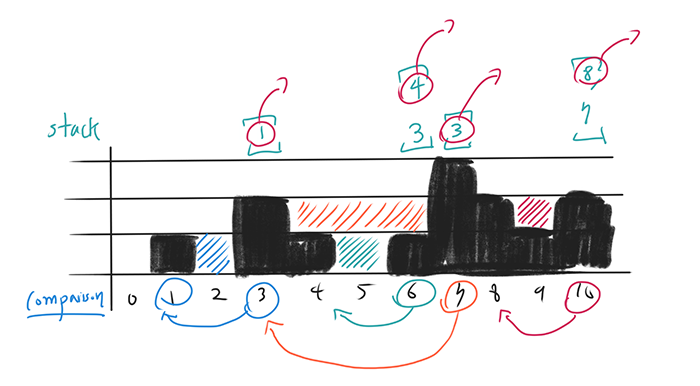 4 8
stack 1 3 3 7
comparison 0 1 2 3 4 5 6 7 8 9 10